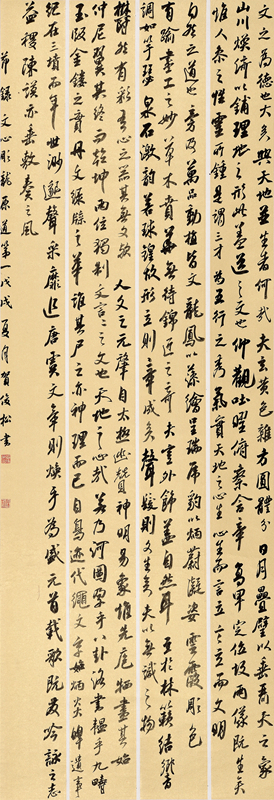 文之為德也大矣與天地並生者何哉夫玄黃色雜方圓體分日月疊璧以垂麗天之象
山川煥綺以鋪理地之形此蓋道之文也仰觀吐曜俯察含章高卑定位故兩儀既生矣
惟人參之性靈所鍾是謂三才為五行之秀氣實天地之心生心生而言立言立而文明
自然之道也旁及萬品動植皆文龍鳳以藻繪呈瑞虎豹以炳蔚凝姿雲霞雕色
有踰畫工之妙草木賁華無待錦匠之奇夫豈外飾蓋自然耳至於林籟結響
調如竽瑟泉石激韻若球鍠故形立則章成矣聲發則文生矣夫以無識之物
鬱然有彩有心之器其無文歟 人文之元肇自太極幽贊神明易象惟先庖犧畫其始
仲尼翼其終而乾坤兩位獨制文言言之文也天地之心哉若乃河圖孕乎八卦洛書韞乎九疇
玉版金鏤之實丹文綠牒之華誰其尸之亦神理而已自鳥跡代繩文字始炳炎皞遺事
紀在三墳而年世渺邈聲采靡追唐虞文章則煥乎為盛元首載歌既發吟詠之志
益稷陳謨亦垂敷奏之風
節錄文心雕龍原道第一戊戌夏月賀俊松書